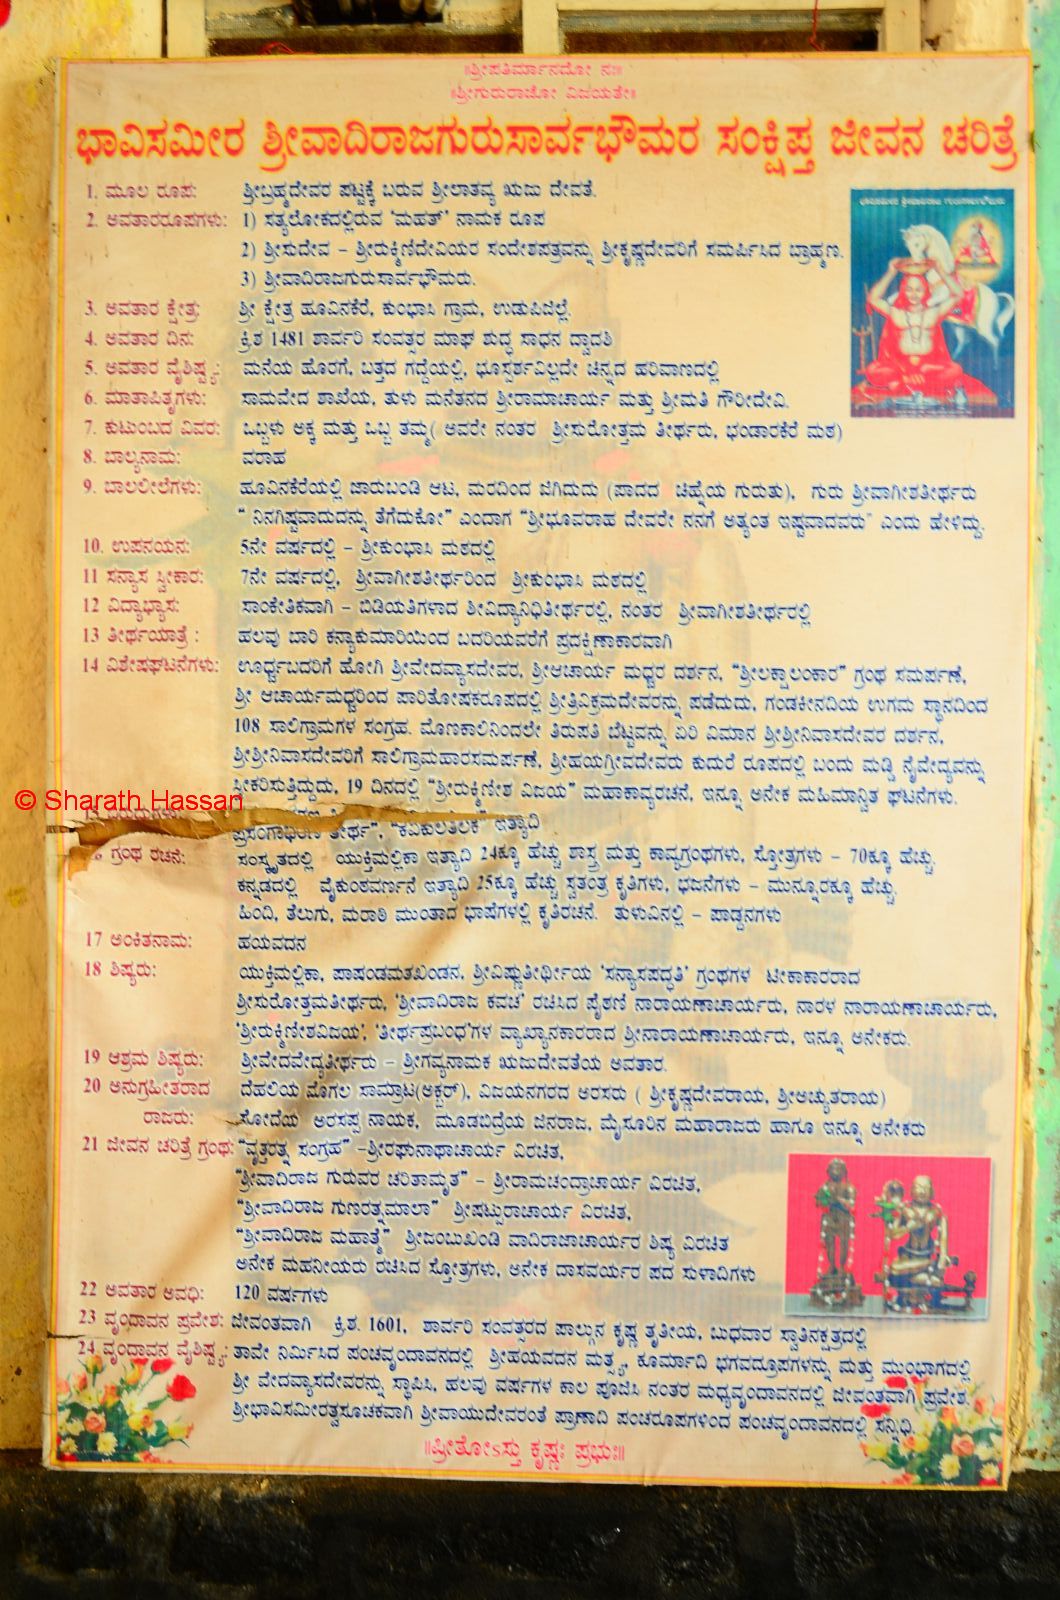 ॥ಶ್ರೀಪತಿರ್ಮಾನದೋ ನಃ॥
॥ಶ್ರೀಗುರುರಾಜೋ ವಿಜಯತೇ॥
ಭಾವಿಸಮೀರ ಶ್ರೀವಾದಿರಾಜಗುರುಸಾರ್ವಭೌಮರ ಸಂಕ್ಷಿಪ್ತ ಜೀವನ ಚರಿತ್ರೆ
1. ಮೂಲ ರೂಪ: ಶ್ರೀಬ್ರಹ್ಮದೇವರ ಪಟ್ಟಕ್ಕೆ ಬರುವ ಶ್ರೀಲಾತವ್ಯ ಋಜು ದೇವತೆ.
2. ಅವತಾರರೂಪಗಳು: 1) ಸತ್ಯಲೋಕದಲ್ಲಿರುವ 'ಮಹತ್' ನಾಮಕ ರೂಪ
2) ಶ್ರೀಸುದೇವ – ಶ್ರೀರುಕ್ಮಿಣಿದೇವಿಯರ ಸಂದೇಶಪತ್ರವನ್ನು ಶ್ರೀಕೃಷ್ಣದೇವರಿಗೆ ಸಮರ್ಪಿಸಿದ ಬ್ರಾಹ್ಮಣ.
3) ಶ್ರೀವಾದಿರಾಜಗುರುಸಾರ್ವಭೌಮರು.
3. ಅವತಾರ ಕ್ಷೇತ್ರ: ಶ್ರೀ ಕ್ಷೇತ್ರ ಹೂವಿನಕೆರೆ, ಕುಂಭಾಸಿ ಗ್ರಾಮ, ಉಡುಪಿಜಿಲ್ಲೆ.
4. ಅವತಾರ ದಿನ: ಕ್ರಿಶ 1481 ಶಾರ್ವರಿ ಸಂವತ್ಸರ ಮಾಘ ಶುದ್ಧ ಸಾಧನ ದ್ವಾದಶಿ
5. ಅವತಾರ ವೈಶಿಷ್ಟ್ಯ: ಮನೆಯ ಹೊರಗೆ, ಬತ್ತದ ಗದ್ದೆಯಲ್ಲಿ, ಭೂಸ್ಪರ್ಶವಿಲ್ಲದೇ ಚಿನ್ನದ ಹರಿವಾಣದಲ್ಲಿ
6. ಮಾತಾಪಿತೃಗಳು: ಸಾಮವೇದ ಶಾಖೆಯ, ತುಳು ಮನೆತನದ ಶ್ರೀರಾಮಾಚಾರ್ಯ ಮತ್ತು ಶ್ರೀಮತಿ ಗೌರೀದೇವಿ.
7. ಕುಟುಂಬದ ವಿವರ: ಒಬ್ಬಳು ಅಕ್ಕ ಮತ್ತು ಒಬ್ಬ ತಮ್ಮ( ಅವರೇ ನಂತರ ಶ್ರೀಸುರೋತ್ತಮ ತೀರ್ಥರು, ಭಂಡಾರಕೆರೆ ಮಠ)
8. ಬಾಲ್ಯನಾಮ: ವರಾಹ
9. ಬಾಲಲೀಲೆಗಳು: ಹೂವಿನಕೆರೆಯಲ್ಲಿ ಜಾರುಬಂಡಿ ಆಟ, ಮರದಿಂದ ಜಿಗಿದುದು (ಪಾದದ ಚಿಹ್ನೆಯ ಗುರುತು), ಗುರು ಶ್ರೀವಾಗೀಶತೀರ್ಥರು
" ನಿನಗಿಷ್ಟವಾದುದನ್ನು ತೆಗೆದುಕೋ" ಎಂದಾಗ "ಶ್ರೀಭೂವರಾಹ ದೇವರೇ ನನಗೆ ಅತ್ಯಂತ ಇಷ್ಟವಾದವರು" ಎಂದು ಹೇಳಿದ್ದು.
10. ಉಪನಯನ: 5ನೇ ವರ್ಷದಲ್ಲಿ – ಶ್ರೀಕುಂಭಾಸಿ ಮಠದಲ್ಲಿ
11 ಸನ್ಯಾಸ ಸ್ವೀಕಾರ: 7ನೇ ವರ್ಷದಲ್ಲಿ, ಶ್ರೀವಾಗೀಶತೀರ್ಥರಿಂದ ಶ್ರೀಕುಂಭಾಸಿ ಮಠದಲ್ಲಿ
12 ವಿದ್ಯಾಭ್ಯಾಸ: ಸಾಂಕೇತಿಕವಾಗಿ – ಬಿಡಿಯತಿಗಳಾದ ಶೀವಿದ್ಯಾನಿಧಿತೀರ್ಥರಲ್ಲಿ, ನಂತರ ಶ್ರೀವಾಗೀಶತೀರ್ಥರಲ್ಲಿ
13 ತೀರ್ಥಯಾತ್ರೆ : ಹಲವು ಬಾರಿ ಕನ್ಯಾಕುಮಾರಿಯಿಂದ ಬದರಿಯವರೆಗೆ ಪ್ರದಕ್ಷಿಣಾಕಾರವಾಗಿ
14 ವಿಶೇಷಘಟನೆಗಳು: ಊರ್ಧ್ವಬದರಿಗೆ ಹೋಗಿ ಶ್ರೀವೇದವ್ಯಾಸದೇವರ, ಶ್ರೀಆಚಾರ್ಯ ಮಧ್ವರ ದರ್ಶನ, "ಶ್ರೀಲಕ್ಷಾಲಂಕಾರ" ಗ್ರಂಥ ಸಮರ್ಪಣೆ,
ಶ್ರೀ ಆಚಾರ್ಯಮಧ್ವರಿಂದ ಪಾರಿತೋಷಕರೂಪದಲ್ಲಿ ಶ್ರೀತ್ರಿವಿಕ್ರಮದೇವರನ್ನು ಪಡೆದುದು, ಗಂಡಕೀನದಿಯ ಉಗಮ ಸ್ಥಾನದಿಂದ
108 ಸಾಲಿಗ್ರಾಮಗಳ ಸಂಗ್ರಹ. ಮೊಣಕಾಲಿನಿಂದಲೇ ತಿರುಪತಿ ಬೆಟ್ಟವನ್ನು ಏರಿ ವಿಮಾನ ಶ್ರೀಶ್ರೀನಿವಾಸದೇವರ ದರ್ಶನ,
ಶ್ರೀಶ್ರೀನಿವಾಸದೇವರಿಗೆ ಸಾಲಿಗ್ರಾಮಹಾರಸಮರ್ಪಣೆ, ಶ್ರೀಹಯಗ್ರೀವದೇವರು ಕುದುರೆ ರೂಪದಲ್ಲಿ ಬಂದು ಮಡ್ಡಿ ನೈವೇದ್ಯವನ್ನು
ಸ್ವೀಕರಿಸುತ್ತಿದ್ದುದು, 19 ದಿನದಲ್ಲಿ "ಶ್ರೀರುಕ್ಮಿಣೀಶ ವಿಜಯ" ಮಹಾಕಾವ್ಯರಚನೆ, ಇನ್ನೂ ಅನೇಕ ಮಹಿಮಾನ್ವಿತ ಘಟನೆಗಳು.
© Sharath Hassan
15 ಬಿರುದುಗಳು:
ಪ್ರಸಂಗಾಭರಣ ತೀರ್ಥ", "ಕವಿಕುಲತಿಲಕ" ಇತ್ಯಾದಿ
ಗ್ರಂಥ ರಚನೆ: ಸಂಸ್ಕೃತದಲ್ಲಿ ಯುಕ್ತಿಮಲ್ಲಿಕಾ ಇತ್ಯಾದಿ 24ಕ್ಕೂ ಹೆಚ್ಚು ಶಾಸ್ತ್ರ ಮತ್ತು ಕಾವ್ಯಗ್ರಂಥಗಳು, ಸ್ತೋತ್ರಗಳು – 70ಕ್ಕೂ ಹೆಚ್ಚು.
ಕನ್ನಡದಲ್ಲಿ ವೈಕುಂಠವರ್ಣನೆ ಇತ್ಯಾದಿ 25ಕ್ಕೂ ಹೆಚ್ಚು ಸ್ವತಂತ್ರ ಕೃತಿಗಳು, ಭಜನೆಗಳು – ಮುನ್ನೂರಕ್ಕೂ ಹೆಚ್ಚು.
ಹಿಂದಿ, ತೆಲುಗು, ಮರಾಠಿ ಮುಂತಾದ ಭಾಷೆಗಳಲ್ಲಿ ಕೃತಿರಚನೆ. ತುಳುವಿನಲ್ಲಿ – ಪಾಡ್ದನಗಳು
17 ಅಂಕಿತನಾಮ: ಹಯವದನ
18 ಶಿಷ್ಯರು: ಯುಕ್ತಿಮಲ್ಲಿಕಾ, ಪಾಷಂಡಮತಖಂಡನ, ಶ್ರೀವಿಷ್ಣುತೀರ್ಥೀಯ 'ಸನ್ಯಾಸಪದ್ಧತಿ' ಗ್ರಂಥಗಳ ಟೀಕಾಕಾರರಾದ
ಶ್ರೀಸುರೋತ್ತಮತೀರ್ಥರು, 'ಶ್ರೀವಾದಿರಾಜ ಕವಚ' ರಚಿಸಿದ ಪೈಠಣಿ ನಾರಾಯಣಾಚಾರ್ಯರು, ನಾರಳ ನಾರಾಯಣಾಚಾರ್ಯರು,
'ಶ್ರೀರುಕ್ಮಿಣೀಶವಿಜಯ', 'ತೀರ್ಥಪ್ರಬಂಧ'ಗಳ ವ್ಯಾಖ್ಯಾನಕಾರರಾದ ಶ್ರೀನಾರಾಯಣಾಚಾರ್ಯರು, ಇನ್ನೂ ಅನೇಕರು.
19 ಆಶ್ರಮ ಶಿಷ್ಯರು: ಶ್ರೀವೇದವೇದ್ಯತೀರ್ಥರು – ಶ್ರೀಗವ್ಯನಾಮಕ ಋಜುದೇವತೆಯ ಅವತಾರ.
20 ಅನುಗ್ರಹೀತರಾದ ದೆಹಲಿಯ ಮೊಗಲ ಸಾಮ್ರಾಟ(ಅಕ್ಬರ್), ವಿಜಯನಗರದ ಅರಸರು ( ಶ್ರೀಕೃಷ್ಣದೇವರಾಯ, ಶ್ರೀಅಚ್ಯುತರಾಯ)
ರಾಜರು: ಸೋದೆಯ ಅರಸಪ್ಪ ನಾಯಕ, ಮೂಡಬಿದ್ರೆಯ ಜಿನರಾಜ, ಮೈಸೂರಿನ ಮಹಾರಾಜರು ಹಾಗೂ ಇನ್ನೂ ಅನೇಕರು
21 ಜೀವನ ಚರಿತ್ರೆ ಗ್ರಂಥ: "ವೃತ್ತರತ್ನ ಸಂಗ್ರಹ" –ಶ್ರೀರಘುನಾಥಾಚಾರ್ಯ ವಿರಚಿತ,
"ಶ್ರೀವಾದಿರಾಜ ಗುರುವರ ಚರಿತಾಮೃತ" – ಶ್ರೀರಾಮಚಂದ್ರಾಚಾರ್ಯ ವಿರಚಿತ,
"ಶ್ರೀವಾದಿರಾಜ ಗುಣರತ್ನಮಾಲಾ" ಶ್ರೀಷಟ್ಪುರಾಚಾರ್ಯ ವಿರಚಿತ,
"ಶ್ರೀವಾದಿರಾಜ ಮಹಾತ್ಮೆ" ಶ್ರೀಜಂಬುಖಂಡಿ ವಾದಿರಾಜಾಚಾರ್ಯರ ಶಿಷ್ಯ ವಿರಚಿತ
ಅನೇಕ ಮಹನೀಯರು ರಚಿಸಿದ ಸ್ತೋತ್ರಗಳು, ಅನೇಕ ದಾಸವರ್ಯರ ಪದ ಸುಳಾದಿಗಳು
22 ಅವತಾರ ಅವಧಿ: 120 ವರ್ಷಗಳು
23 ವೃಂದಾವನ ಪ್ರವೇಶ: ಜೀವಂತವಾಗಿ ಕ್ರಿ.ಶ. 1601, ಶಾರ್ವರಿ ಸಂವತ್ಸರದ ಪಾಲ್ಗುನ ಕೃಷ್ಣ ತೃತೀಯ, ಬುಧವಾರ ಸ್ವಾತಿನಕ್ಷತ್ರದಲ್ಲಿ
24 ವೃಂದಾವನ ವೈಶಿಷ್ಟ್ಯ: ತಾವೇ ನಿರ್ಮಿಸಿದ ಪಂಚವೃಂದಾವನದಲ್ಲಿ ಶ್ರೀಹಯವದನ ಮತ್ಸ್ಯ, ಕೂರ್ಮಾದಿ ಭಗವದ್ರೂಪಗಳನ್ನು ಮತ್ತು ಮುಂಭಾಗದಲ್ಲಿ
ಶ್ರೀ ವೇದವ್ಯಾಸದೇವರನ್ನು ಸ್ಥಾಪಿಸಿ, ಹಲವು ವರ್ಷಗಳ ಕಾಲ ಪೂಜಿಸಿ ನಂತರ ಮಧ್ಯವೃಂದಾವನದಲ್ಲಿ ಜೀವಂತವಾಗಿ ಪ್ರವೇಶ.
ಶ್ರೀಭಾವಿಸಮೀರತ್ವಸೂಚಕವಾಗಿ ಶ್ರೀವಾಯುದೇವರಂತೆ ಪ್ರಾಣಾದಿ ಪಂಚರೂಪಗಳಿಂದ ಪಂಚವೃಂದಾವನದಲ್ಲಿ ಸನ್ನಿಧಿ.
॥ಪ್ರೀತೋಽಸ್ತು ಕೃಷ್ಣಃ ಪ್ರಭುಃ॥